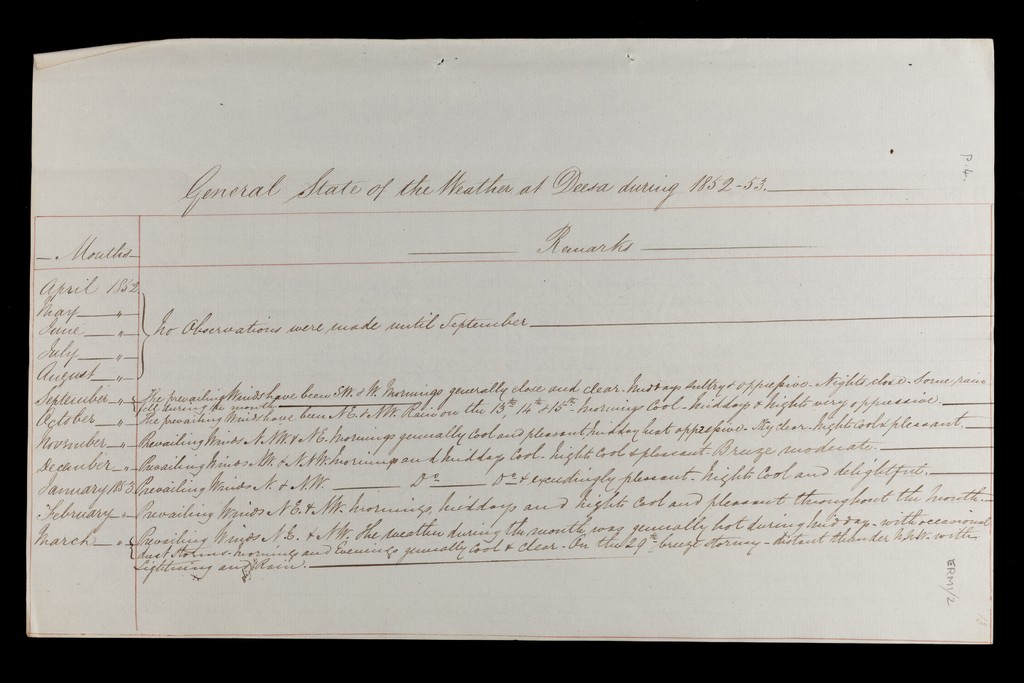 P. 4.
General State of the Weather at Deesa during 1852-53.
Months
Remarks
April 1852
May "
June "
July "
August "
No Observations were made until September
September " The prevailing Winds have been SW. & W. Mornings generally close and clear. Middays sultry & oppressive. Nights close. Some rain
fell during the month
October " The prevailing Winds have been N.E. & N.W. Rain on the 13th 14th & 15th. Mornings Cool - Middays & Nights very oppressive.
November " Prevailing Winds N. NW. & N.E. Mornings generally Cool and pleasant, Midday heat oppressive. Sky clear. Nights Cool & pleasant.
December " Prevailing Winds W. & N.NW. Mornings and Midday Cool. Nights Cool & pleasant. Breeze moderate.
January 1853 Prevailing Winds N. & N.W. Do Do & exceedingly pleasant. Nights Cool and delightful.
February " Prevailing Winds N.E. & NW. Mornings, Middays and Nights Cool and pleasant throughout the Month.
March " Prevailing Winds N.E. & N.W. The weather during the month, was generally hot during Midday - with occasional
dust storms - Mornings and Evenings generally Cool & Clear - On the 29th breeze stormy - distant thunder N.NW. with
Lightning and Rain.
ERM1/2